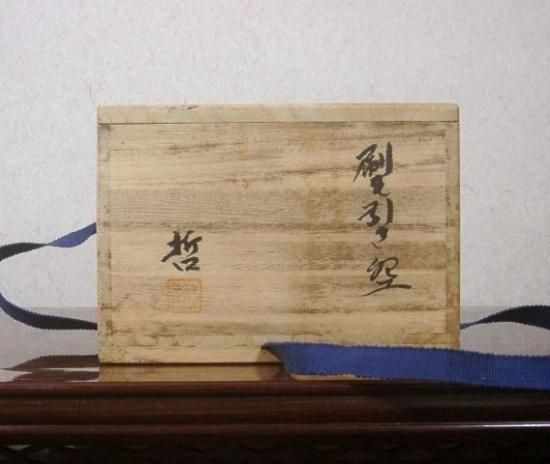 刷毛引き盌
哲